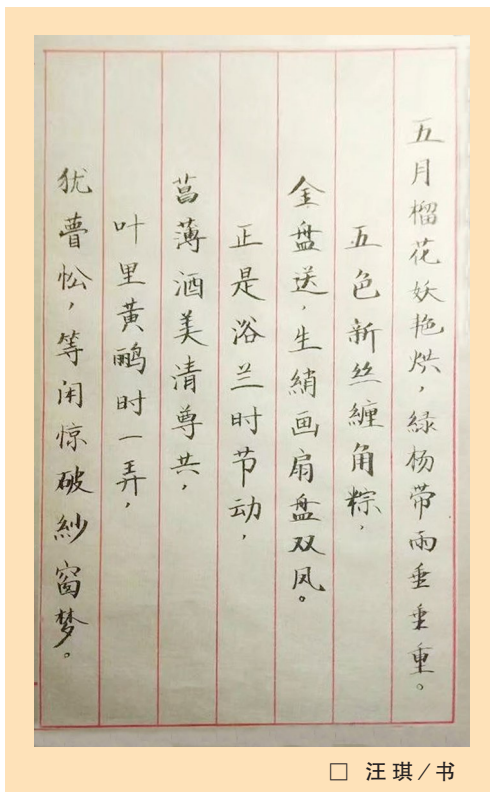 五月榴花妖艳烘，緑杨带雨垂垂重。
五色新丝纏角粽，
金盘送，生綃画扇盘双凤。
正是浴兰时节动，
菖薄酒美清尊共，
叶里黄鹂时一弄，
犹瞢忪，等闲惊破紗窗梦。
□ 汪琪／书